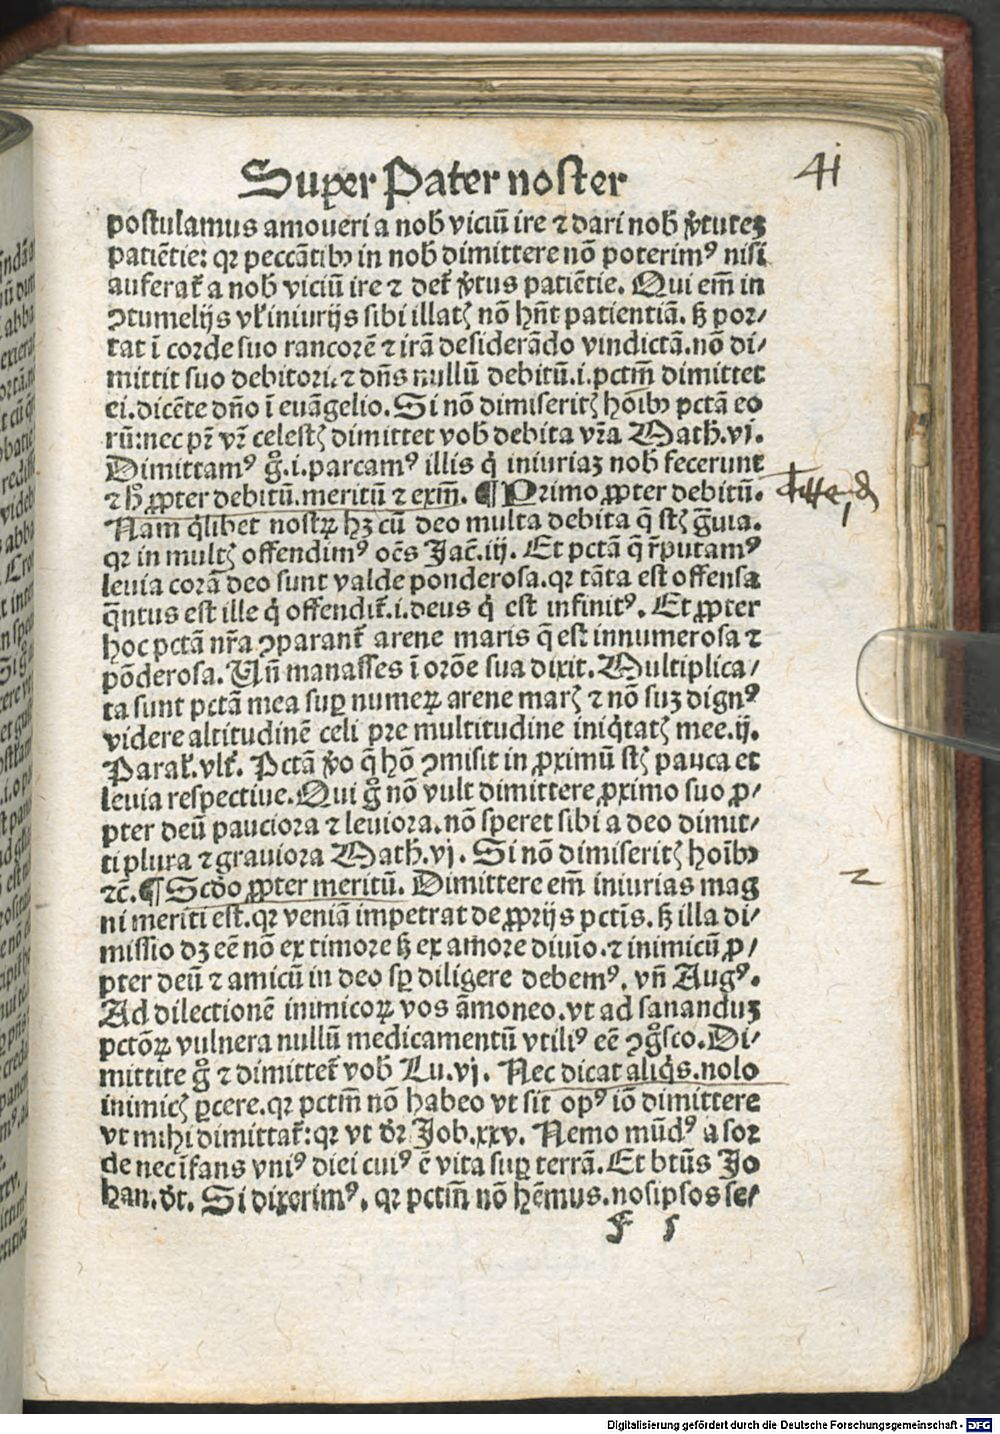 Super Pater noster
41
postulamus amoueri a nob̄ viciū ire ⁊ dari nob̄ v̓tuteꝫ
patiētie: qꝛ peccātibꝰ in nob̄ dimittere nō poterimꝰ nisi
auferat᷑ a nob̄ viciū ire ⁊ det᷑ v̓tus patiētie. Qui em̄ in
ꝯtumelijs vl̓ iniurijs sibi illatꝭ nō hn̄t patientiā. sꝫ por⸗
tat ī corde suo rancorē ⁊ irā desiderādo vindictā. nō di⸗
mittit suo debitori. ⁊ dn̄s nullū debitū .i. pctm̄ dimittet
ei. dicēte dn̄o ī euāgelio. Si nō dimiseritꝭ hoībꝰ pctā eo
rū: nec pr̄ vr̄ celestꝭ dimittet vob̄ debita vr̄a Math̄. vj.
Dimittamꝰ g̊ .i. parcamꝰ illis q̇ iniuriaꝫ nob̄ fecerunt
⁊ h̄ ꝓpter debitū. meritū ⁊ exm̄. ¶ Primo ꝓpter debitū.
Nam q̇libet nostrꝝ hꝫ cū deo multa debita q̄ stꝭ g̈uia.
qꝛ in multꝭ offendimꝰ oēs Jac̄. iij. Et pctā q̄ r̄putamꝰ
leuia corā deo sunt valde ponderosa. qꝛ tāta est offensa
q̄ntus est ille q̇ offendit᷑ .i. deus q̇ est infinitꝰ. Et ꝓpter
hoc pctā nr̄a ꝯparant᷑ arene maris q̄ est innumerosa ⁊
pōderosa. Vn̄ manasses ī orōe sua dixit. Multiplica⸗
ta sunt pctā mea suꝑ numeꝝ arene marꝭ ⁊ nō suꝫ dignꝰ
videre altitudinē celi pre multitudine iniq̇tatꝭ mee. ij.
Paral̓. vlt̓. Pctā v̓o q̄ hō ꝯmisit in ꝓximū stꝭ pauca et
leuia respectiue. Qui g̊ nō vult dimittere ꝓximo suo ꝓ⸗
pter deū pauciora ⁊ leuiora. nō speret sibi a deo dimit⸗
ti plura ⁊ grauiora Math̄. vj. Si nō dimiseritꝭ hoībꝰ
⁊c̄. ¶ Scd̄o ꝓpter meritū. Dimittere em̄ iniurias mag
ni meriti est. qꝛ veniā impetrat de ꝓprijs pctīs. sꝫ illa di⸗
missio dꝫ eē nō ex timore sꝫ ex amore diuīo. ⁊ inimicū ꝓ⸗
pter deū ⁊ amicū in deo sꝑ diligere debemꝰ. vn̄ Augꝰ.
Ad dilectionē inimicoꝝ vos āmoneo. vt ad sananduꝫ
pctōꝝ vulnera nullū medicamentū vtiliꝰ eē ꝯg̊sco. Di⸗
mittite g̊ ⁊ dimittet᷑ vob̄ Lu. vj. Nec dicat aliq̇s. nolo
inimicꝭ ꝑcere. qꝛ pctm̄ nō habeo vt sit opꝰ iō dimittere
vt mihi dimittat᷑: qꝛ vt dr̄ Job. xxv. Nemo mūdꝰ a sor
de nec īfans vniꝰ diei cuiꝰ ē vita suꝑ terrā. Et btūs Jo
han. dt̓. Si dixerimꝰ, qꝛ pctm̄ nō hēmus. nosipsos se⸗
f 1
Digitalisierung gefördert durch die Deutsche Forschungsgemeinschaft - DFG